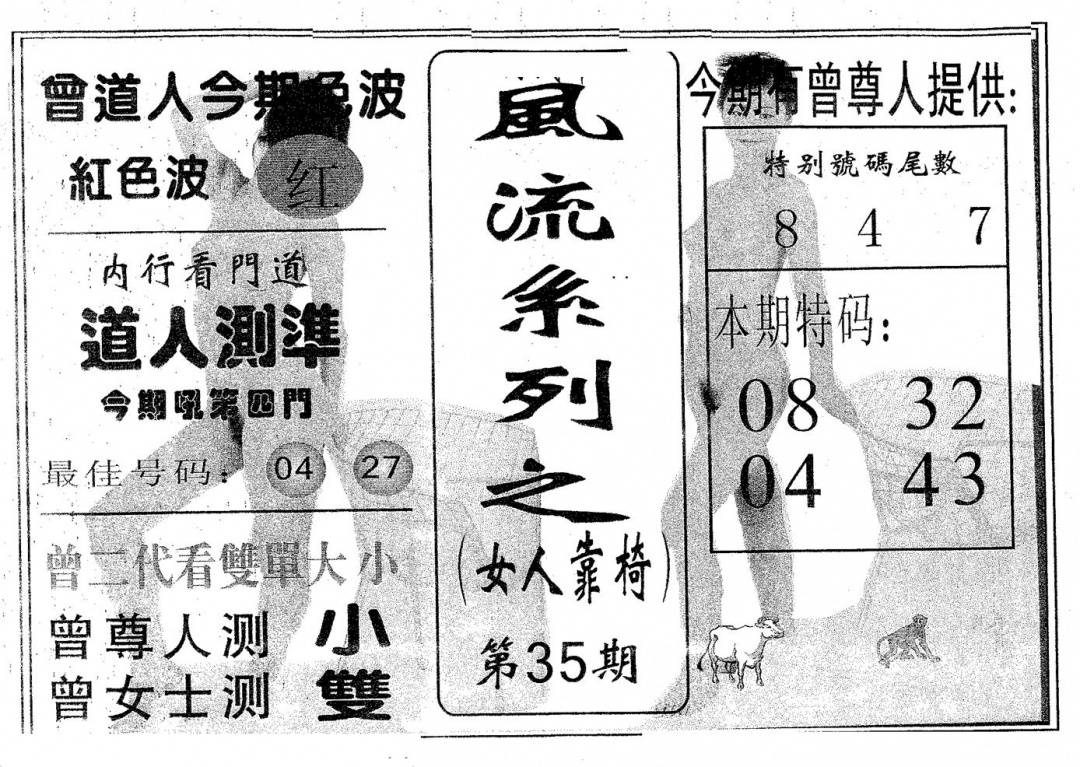 曾道人今期色波
紅色波 红
内行看門道
道人测準
今期吼第四門
最佳号码: 04 27
曾二代看雙單大小
曾尊人测 小
曾女士测 雙
風流系列之
(女人靠椅)
第35期
今期有曾尊人提供:
特别號碼尾數
8 4 7
本期特码:
08 32
04 43